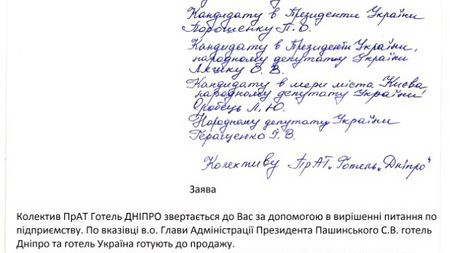 Кандидату в Президенти України
Порошенку П.О.
Кандидату в Президенти України,
народному депутату України
Ляшку О.В.
Кандидату в мери міста Києва
народному депутату України
Оробець Л.Ю.
Народному депутату України
Геращенко І.В.
Колективу ПрАТ „Готель „Дніпро"
Заява
Колектив ПрАТ Готель ДНІПРО звертається до Вас за допомогою в вирішенні питання по
підприємству. По вказівці в.о. Глави Адміністрації Президента Пашинського С.В. готель
Дніпро та готель Україна готують до продажу.